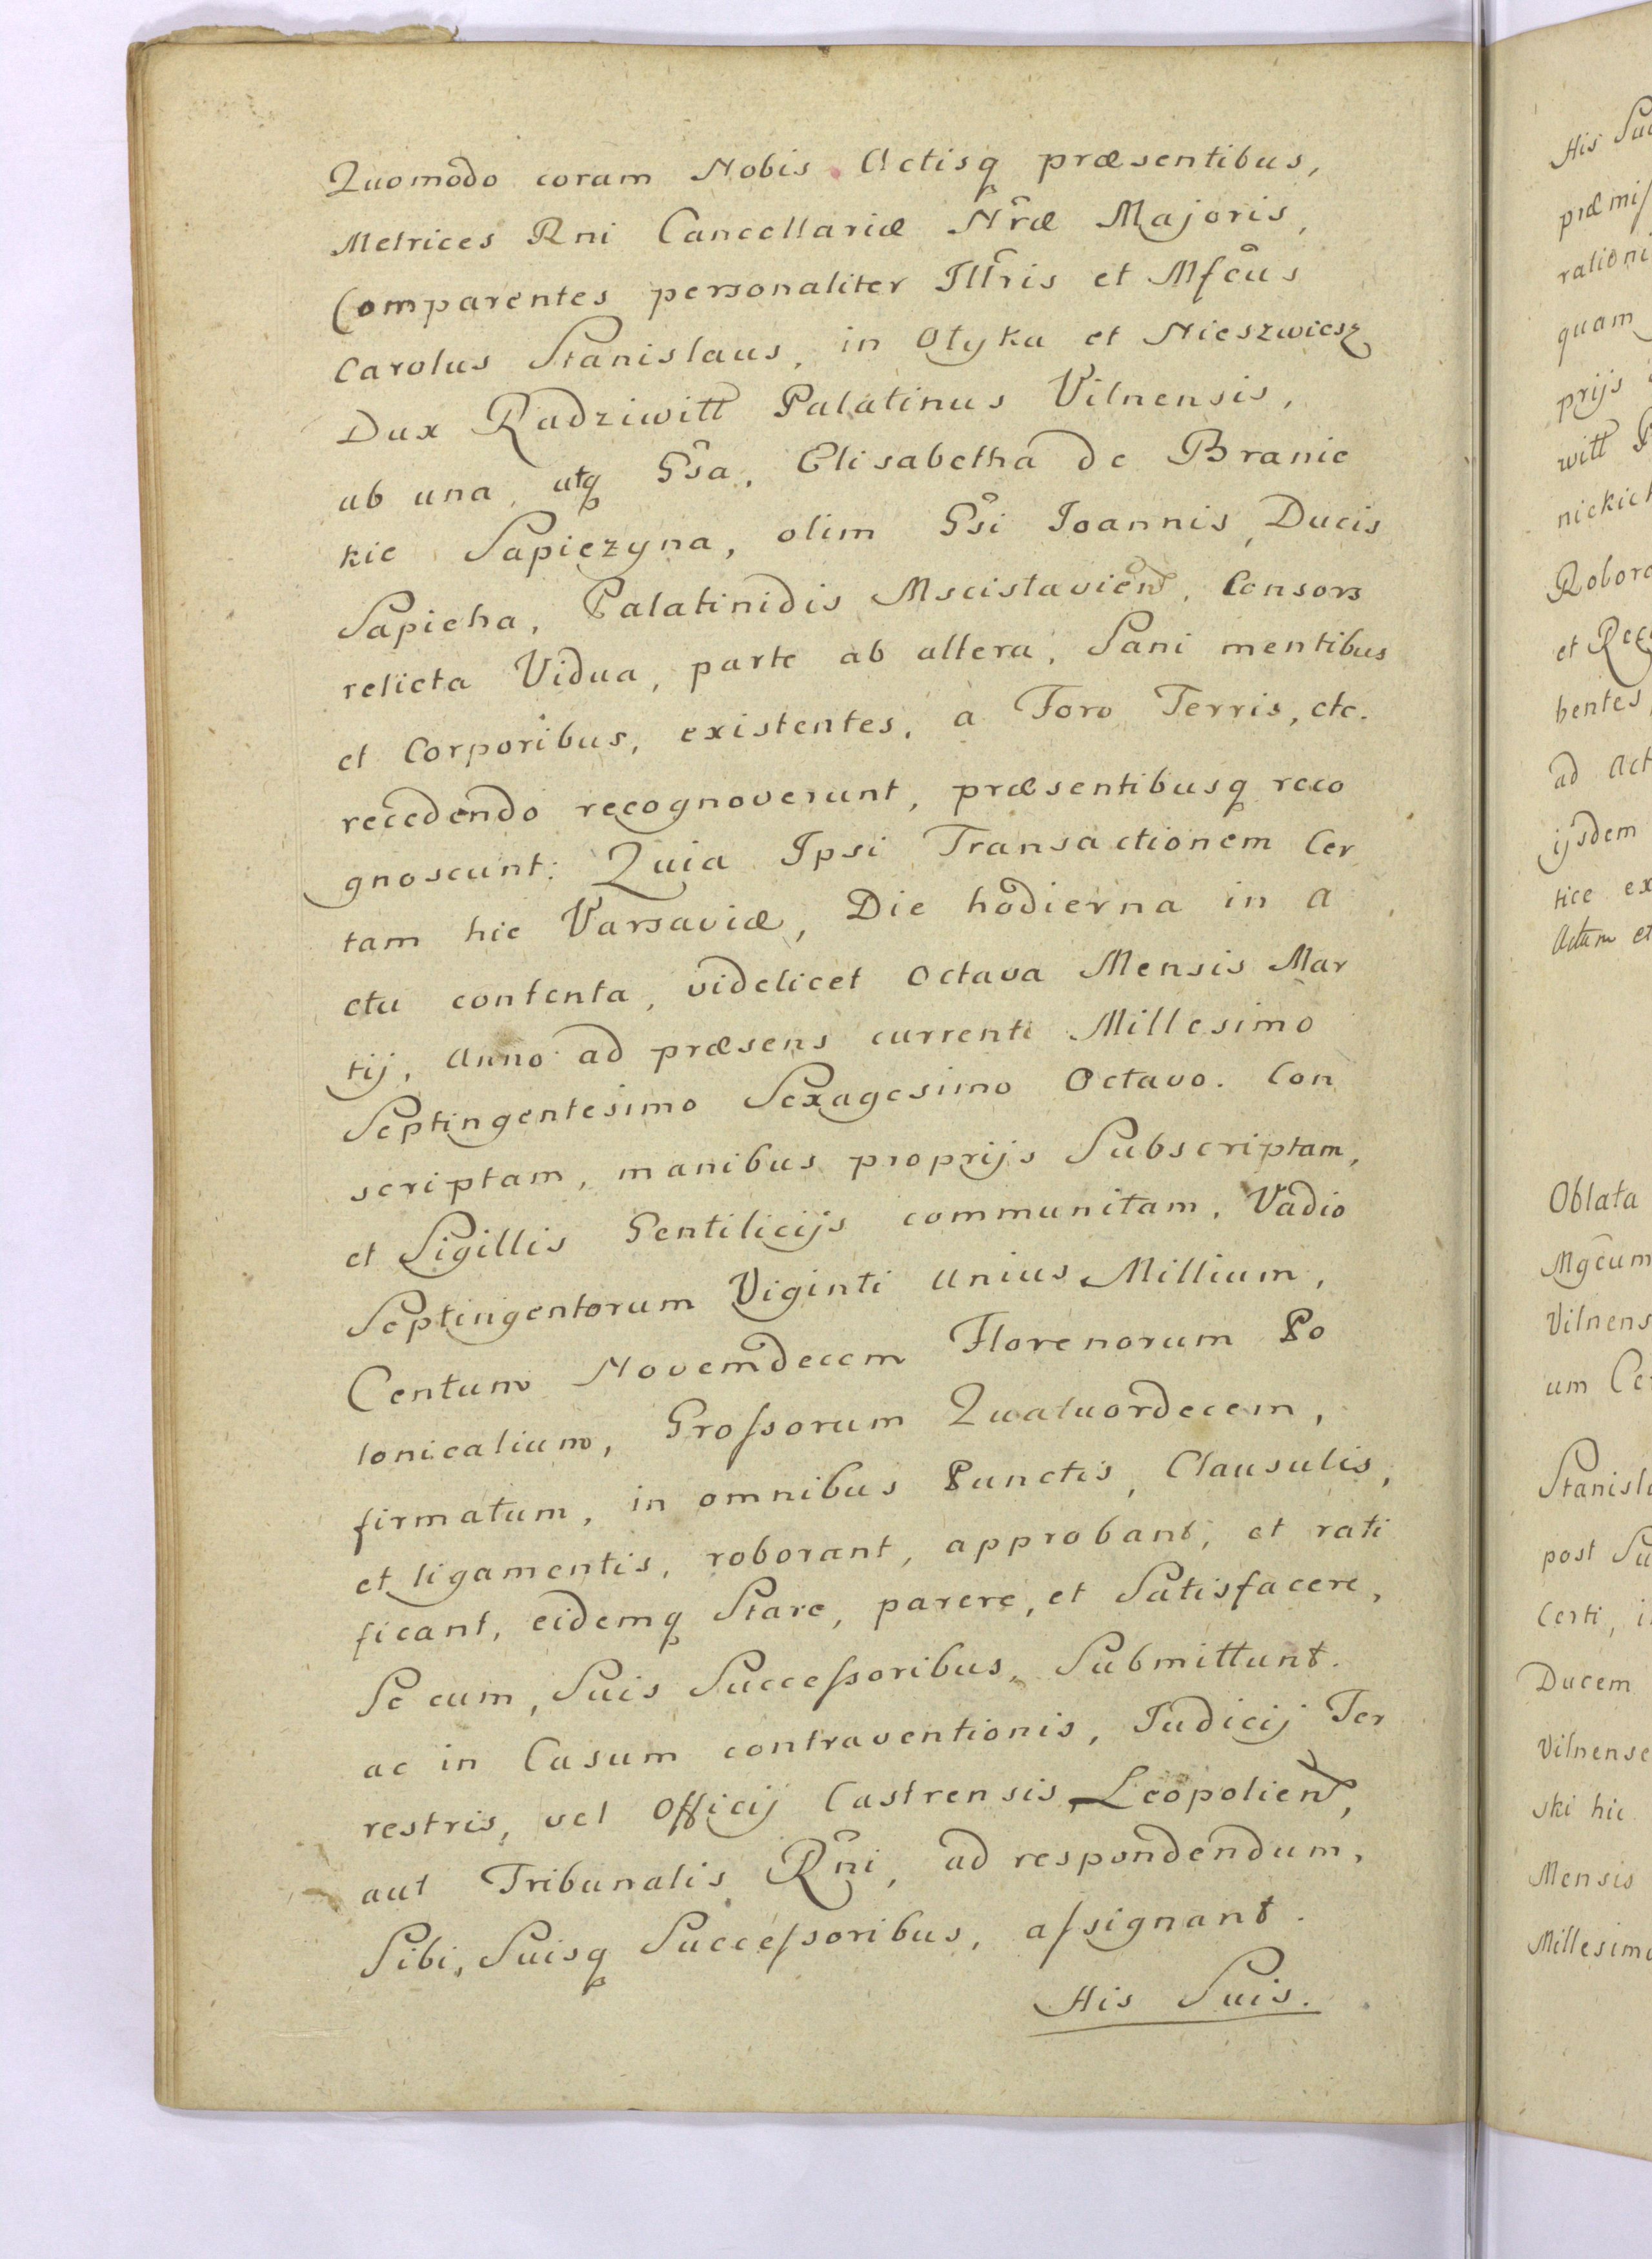 Quomodo coram Nobis Actisq præsentibus,
Metrices Rni Cancellariæ Nræ Majoris,
Comparentes personaliter Illris et Mfcus
Carolus Stanislaus, in Ołyka et Nieszwiesz
Dux Radziwiłł Palatinus Vilnensis,
ab una, atq Gsa, Elisabetha de Branic
kie Sapieżyna, olim Gsi Ioannis, Ducis
Sapieha, Palatinidis Mscislavien, Consors
relicta Vidua, parte ab altera, Sani mentibus
et Corporibus, existentes, a Foro Terris, etc.
recedendo recognoverunt, præsentibusq reco
gnoscunt: Quia Ipsi Transactionem Cer
tam hic Varsaviæ, Die hodierna in A
ctu contenta, videlicet Octava Mensis Mar
tij, Anno ad præsens currenti Millesimo
Septingentesimo Sexagesimo Octavo. Con
scriptam, manibus proprijs Subscriptam,
et Sigillis Gentilicijs communitam, Vadio
Septingentorum Viginti Unius Millium,
Centum Novemdecem Florenorum Po
lonicalium, Groſsorum Quatuordecem,
firmatum, in omnibus Punctis, Clausulis,
et ligamentis, roborant, approbant, et rati
ficant, eidemq Stare, parere, et Satisfacere,
Se cum, Suis Succeſsoribus, Submittunt.
ac in Casum contraventionis, Iudicij Ter
restris, vel Officij Castrensis, Leopolien,
aut Tribunalis Rni, ad respondendum,
Sibi, Suisq Succeſsoribus, aſsignant.
His Suis.
His
præmiſ
quam
prijs
wiłł
et
hentes
ad Act
ijsdem
tice ex
Actum et
Oblata
Mgcum
Vilnens
um
post
Certi,
Ducem
Vilnense
ski hic
Mensis